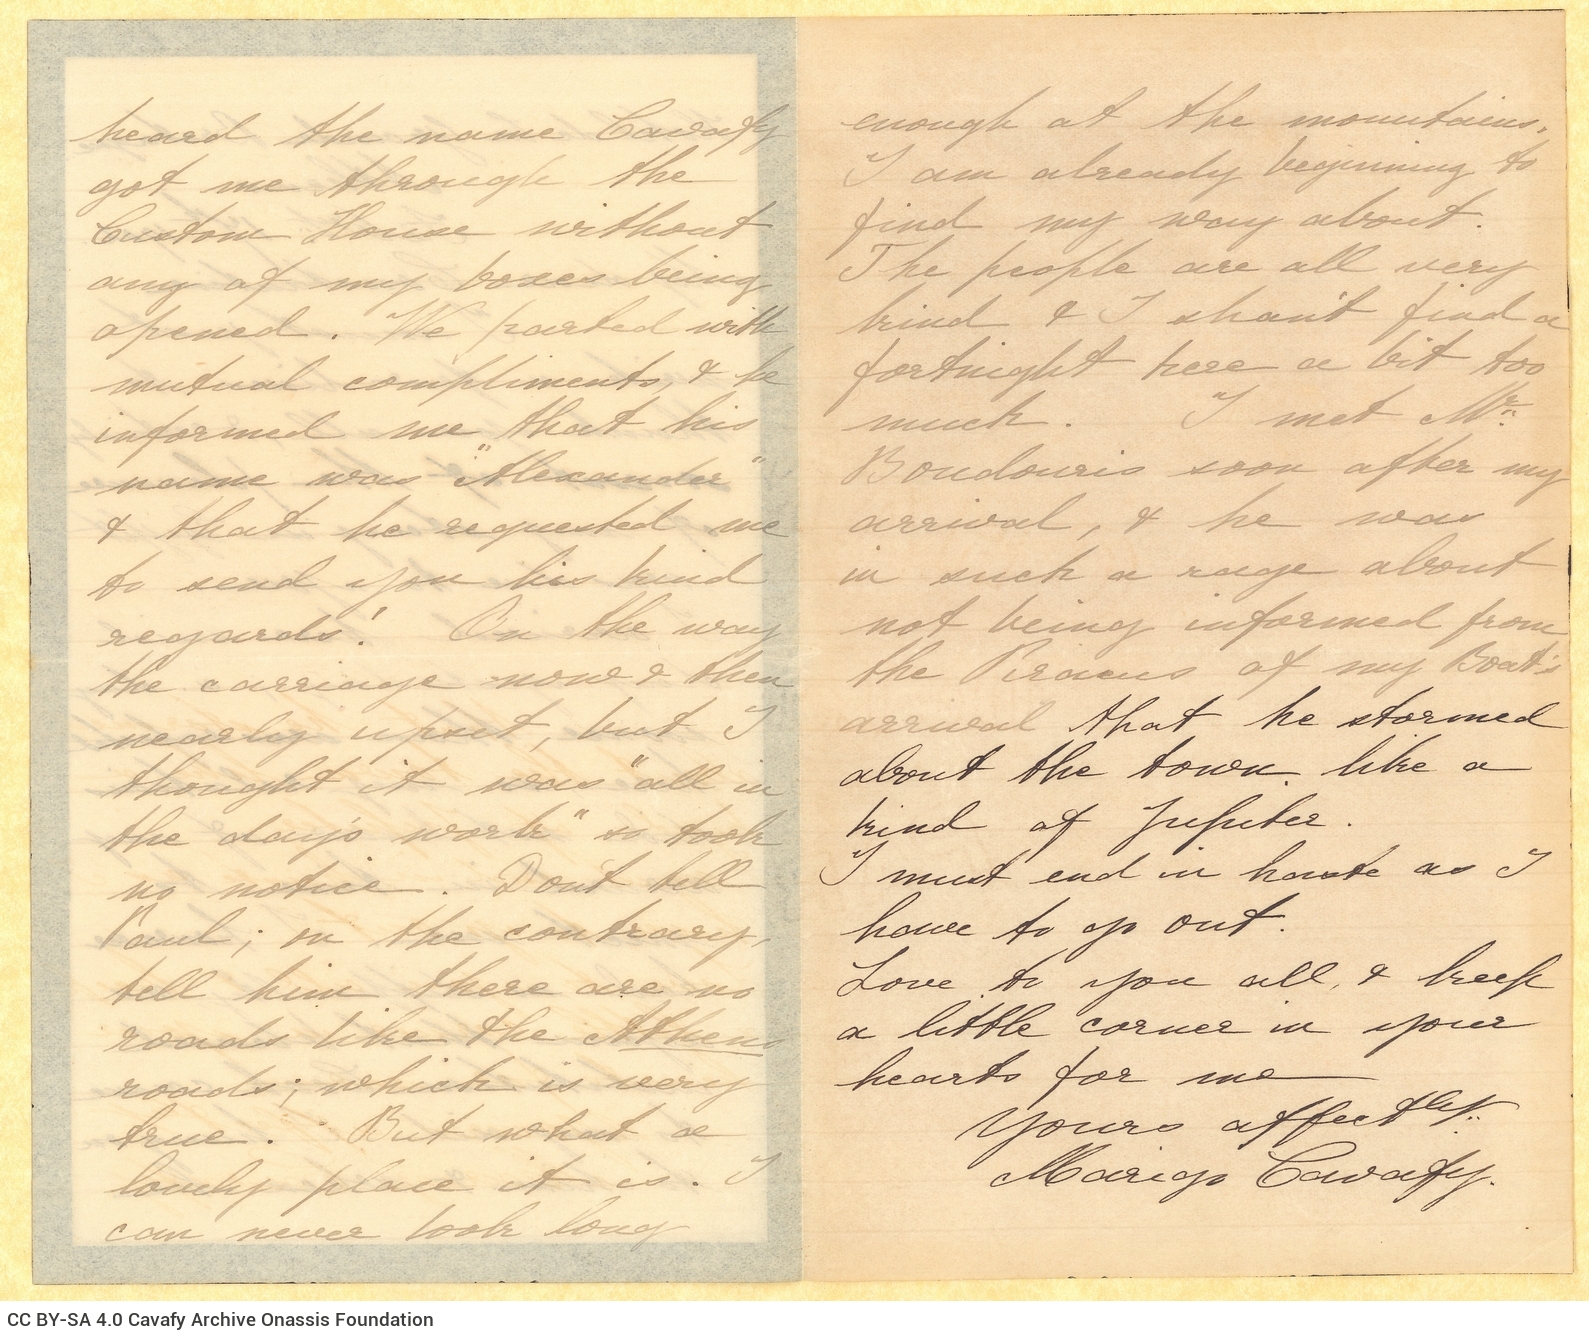 heard the name Cavafy
got me through the
Custom House without
any of my boxes being
opened. We parted with
mutual compliments, & he
informed me that his
name was "Alexander"
& that he requested me
to send you his kind
regards! On the way
the carriage now & then
nearly upset, but I
thought it was "all in
the day's work" so took
no notice. Don't tell
Paul; on the contrary,
tell him there are no
roads like the Athens
roads; which is very
true. But what a
lovely place it is. I
can never look long
enough at the mountains.
I am already beginning to
find my way about.
The people are all very
kind & I shan't find a
fortnight here a bit too
much. I met Mr.
Boudouris soon after my
arrival, & he was
in such a rage about
not being informed from
the Piraeus of my Boat's
arrival that he stormed
about the town like a
kind of Jupiter.
I must end in haste as I
have to go out.
Love to you all, & keep
a little corner in your
hearts for me
Yours affectly.
Marigo Cavafy.
CC BY-SA 4.0 Cavafy Archive Onassis Foundation